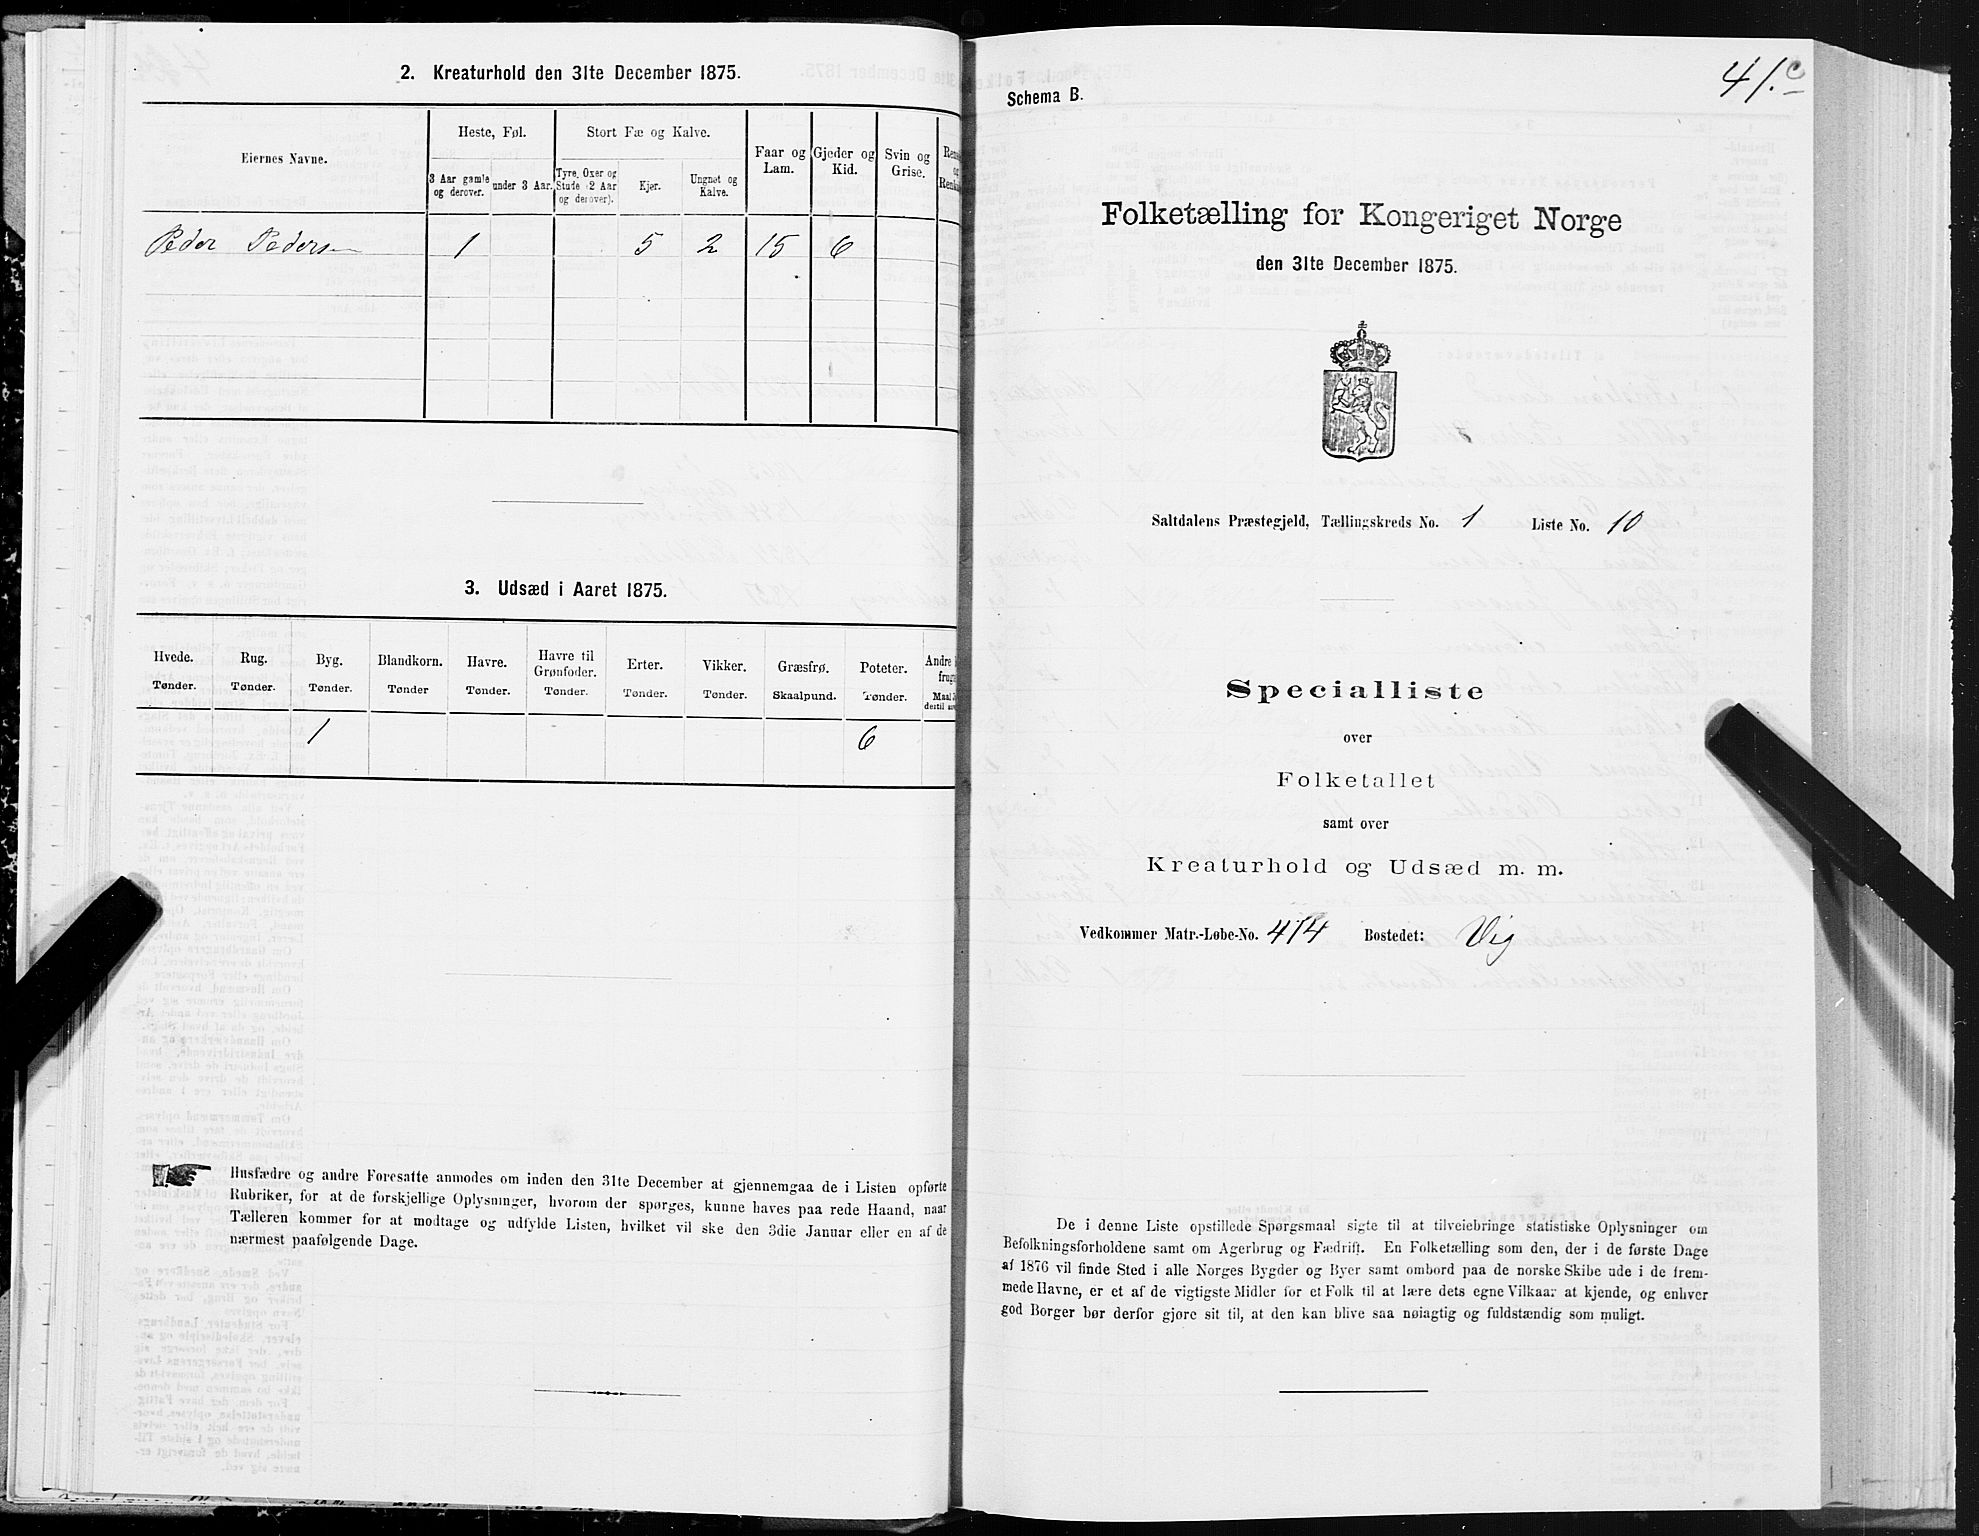 2. Kreaturhold den 31te December 1875.
Eiernes Navne.
Heste, Føl.
Stort Fæ og Kalve.
Faar og Lam.
Gjeder og Kid.
Svin og Grise.
3 Aar gamle og derover.
under 3 Aar.
Tyre, Oxer og Stude (2 Aar og derover).
Kjer.
Ungnøt og Kalve.
Peder Pedersen 1 5 2 15 6
3. Udsæd i Aaret 1875.
Hvede. Rug. Byg. Blandkorn. Havre. Havre til Grønfoder. Erter. Vikker. Græsfrø. Poteter.
Tønder. Tønder. Tønder. Tønder Tønder. Tønder. Tønder. Tønder. Skaalpund. Tønder.
1 6
Husfædre og andre Foresatte anmodes om inden den 31te December at gjennemgaa de i Listen opførte
Rubriker, for at de forskjellige Oplysninger, hvorom der spørges, kunne haves paa rede Haand, naar
Tælleren kommer for at modtage og udfylde Listen, hvilket vil ske den 3die Januar eller en af de
nærmest paafølgende Dage.
41.c
Schema B.
Folketælling for Kongeriget Norge
den 31te December 1875.
Saltdalens Præstegjeld, Tællingskreds No. 1 Liste No. 10
Specialliste
over
Folketallet
samt over
Kreaturhold og Udsæd m. m.
Vedkommer Matr.-Løbe-No. 414 Bostedet: Vig
De i denne Liste opstillede Spørgsmaal sigte til at tilveiebringe statistiske Oplysninger om
Befolkningsforholdene samt om Agerbrug og Fædrift. En Folketælling som den, der i de første Dage
af 1876 vil finde Sted i alle Norges Bygder og Byer samt ombord paa de norske Skibe ude i de frem-
mede Havne, er et af de vigtigste Midler for et Folk til at lære dets egne Vilkaar at kjende, og enhver
god Borger bør derfor gjøre sit til, at den kan blive saa nøiagtig og fuldstændig som muligt.